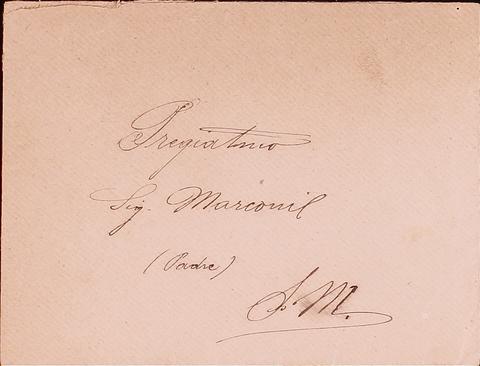 Pregiatmo
Sig. Marconil
(Padre)
S. M.